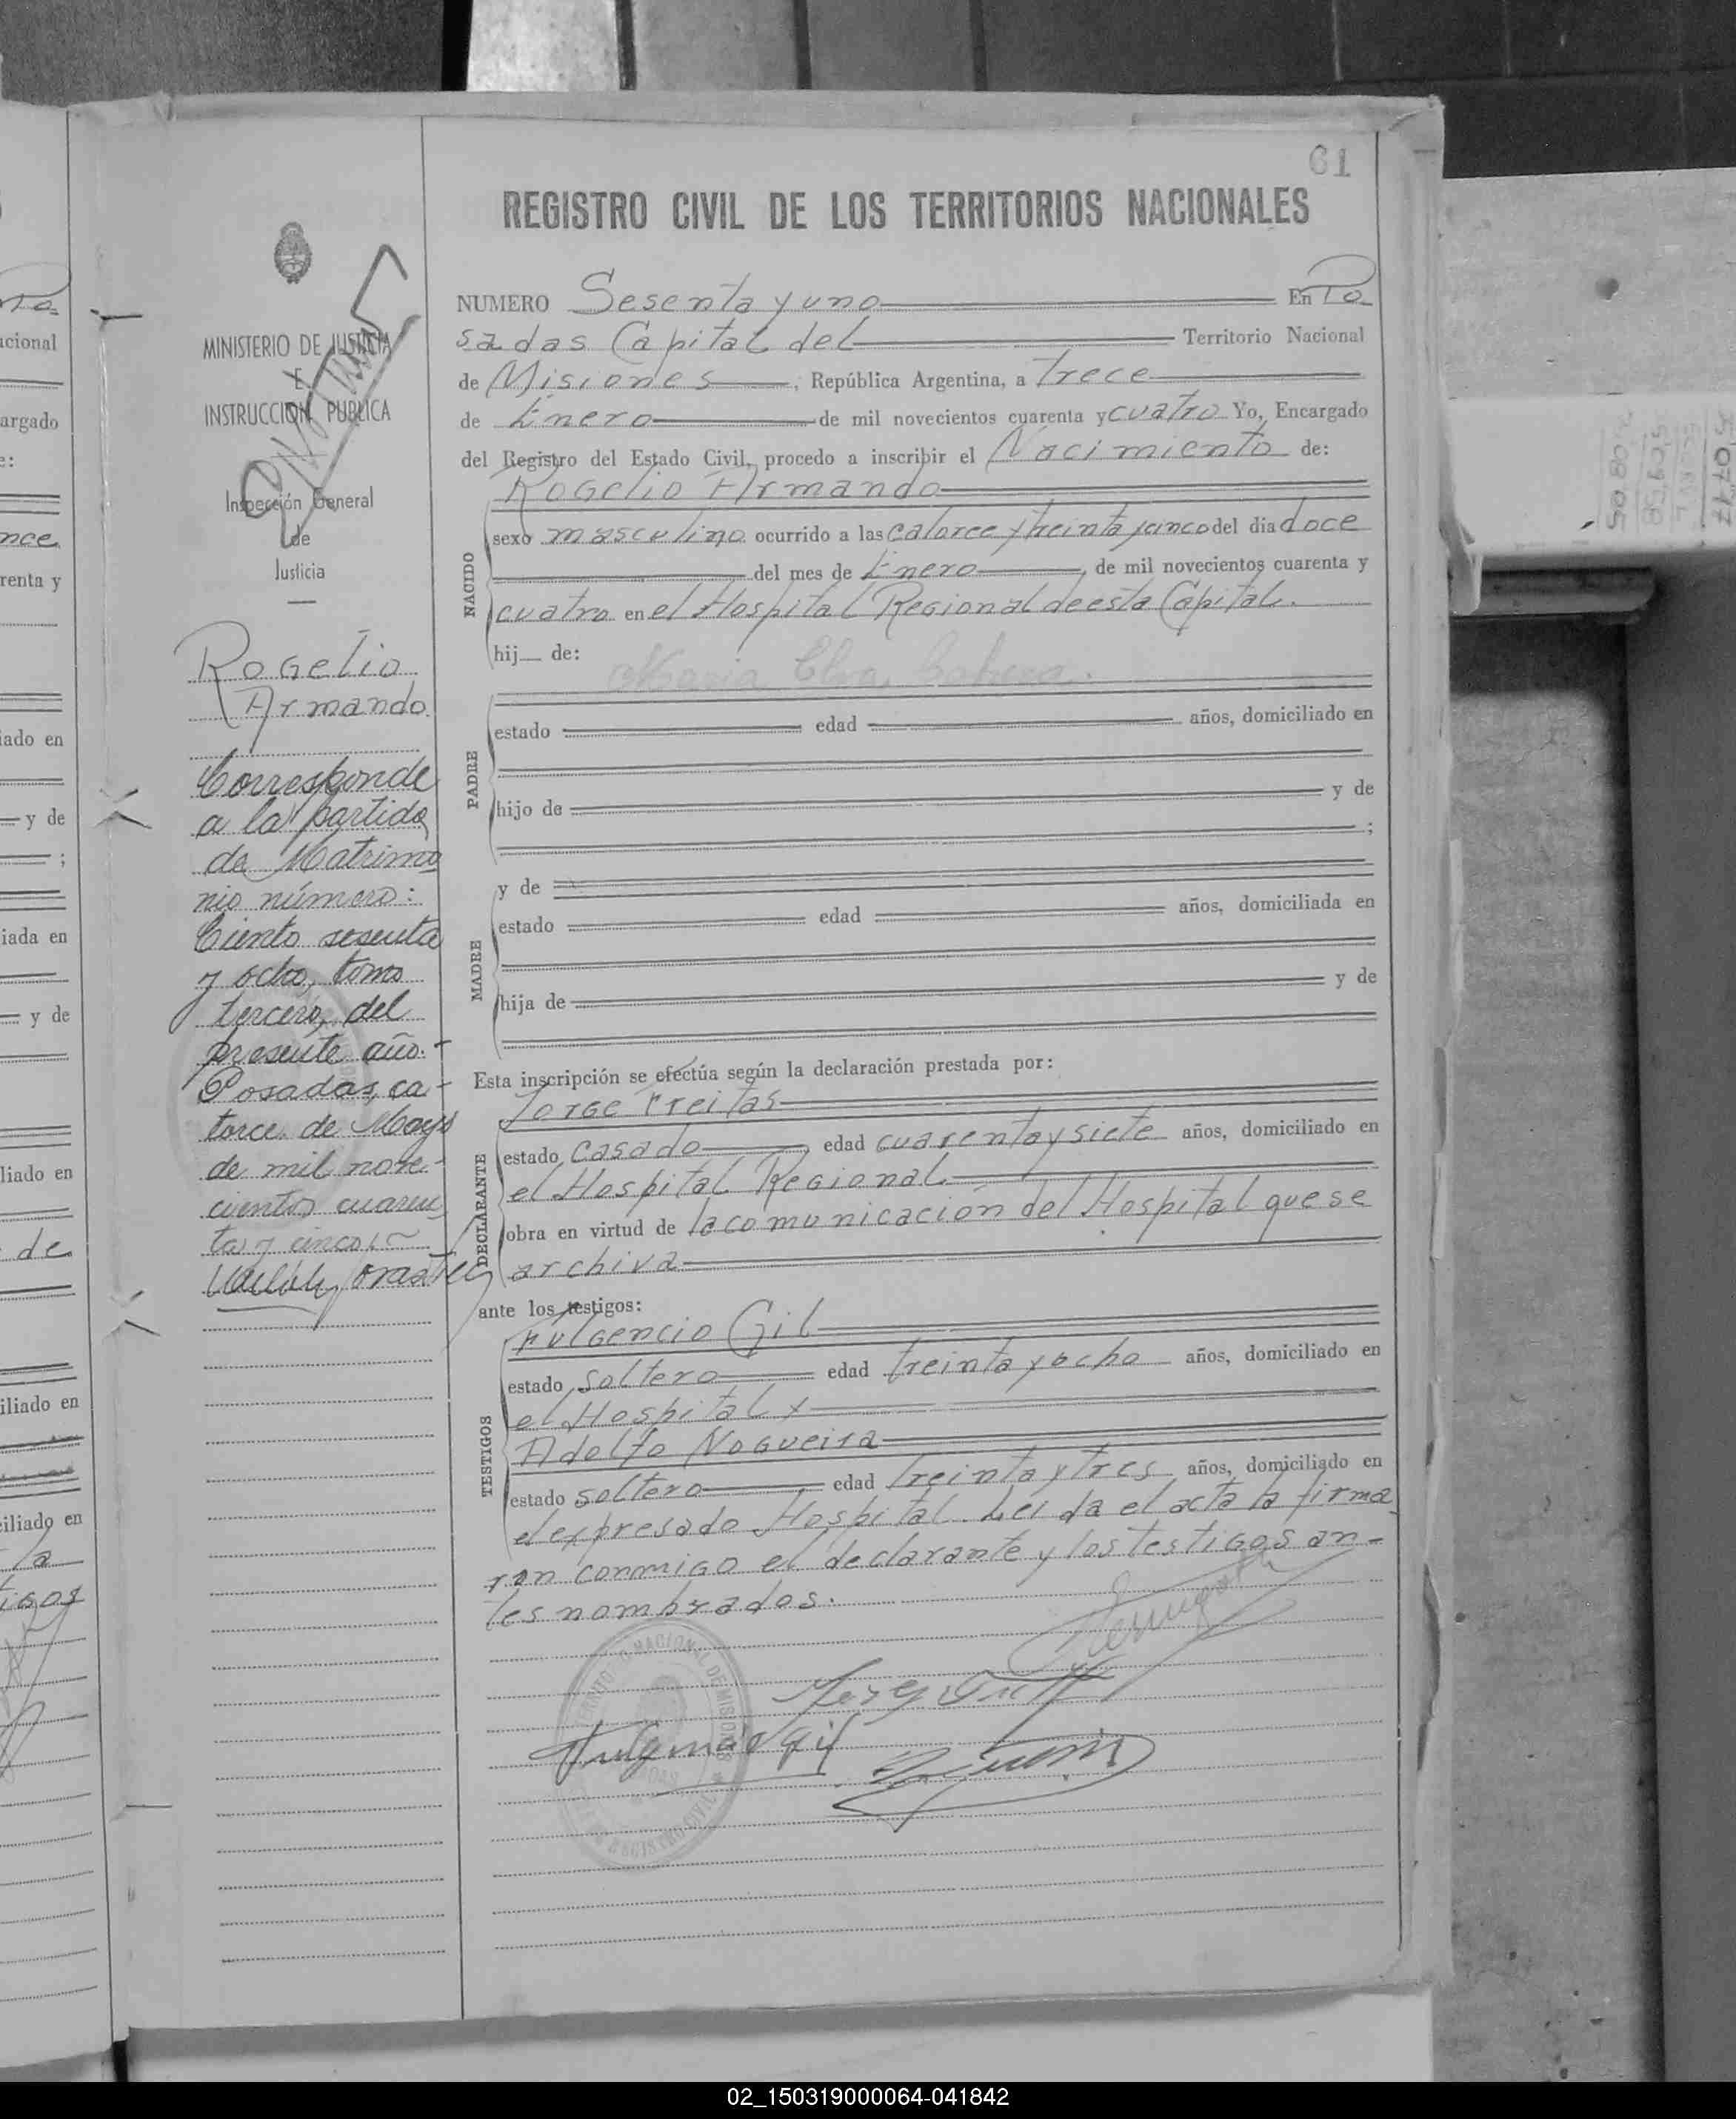 61
REGISTRO CIVIL DE LOS TERRITORIOS NACIONALES
MINISTERIO DE JUSTICIA
E
INSTRUCCION PUBLICA
Inspección General
de
Justicia
Rogelio
Armando
Corresponde
a la partida
de Matrimo
nio número:
Ciento sesenta
y ocho, tomo
tercero, del
presente año.-
Posadas, ca-
torce de Mayo
de mil nove-
cientos cuaren
ta y cinco.
NUMERO Sesenta y uno En Po
sadas Capital del Territorio Nacional
de Misiones, República Argentina, a Trece
de Enero de mil novecientos cuarenta y cuatro Yo, Encargado
del Registro del Estado Civil, procedo a inscribir el Nacimiento de:
Rogelio Armando
NACIDO
sexo masculino ocurrido a las catorce y treinta y cinco del dia doce
del mes de Enero, de mil novecientos cuarenta y
cuatro en el Hospital Regional de esta Capital.
hij de:
Maria
PADRE
estado edad años, domiciliado en
hijo de y de
;
y de
MADRE
estado edad años, domiciliada en
hija de y de
Esta inscripción se efectúa según la declaración prestada por:
Jorge Freitas
DECLARANTE
estado casado, edad cuarenta y siete años, domiciliado en
el Hospital Regional
obra en virtud de la comunicación del Hospital que se
archiva
ante los testigos:
Fulgencio Gil
TESTIGOS
estado soltero edad treinta y ocho años, domiciliado en
el Hospital y
Adolfo Nogueira
estado soltero edad treinta y tres años, domiciliado en
el expresado Hospital. Leida el acta la firma
ron conmigo el declarante y los testigos an-
tes nombrados.
02_150319000064-041842